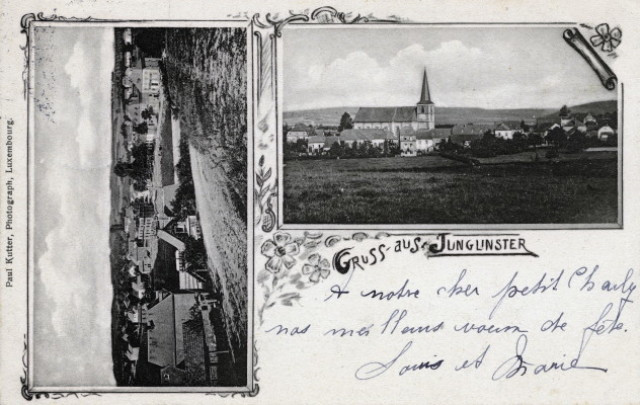 Paul Kutter, Photograph, Luxembourg.
GRUSS aus JUNGLINSTER
A notre cher petit Charly
nos meilleurs voeux de fête.
Louis et Marie